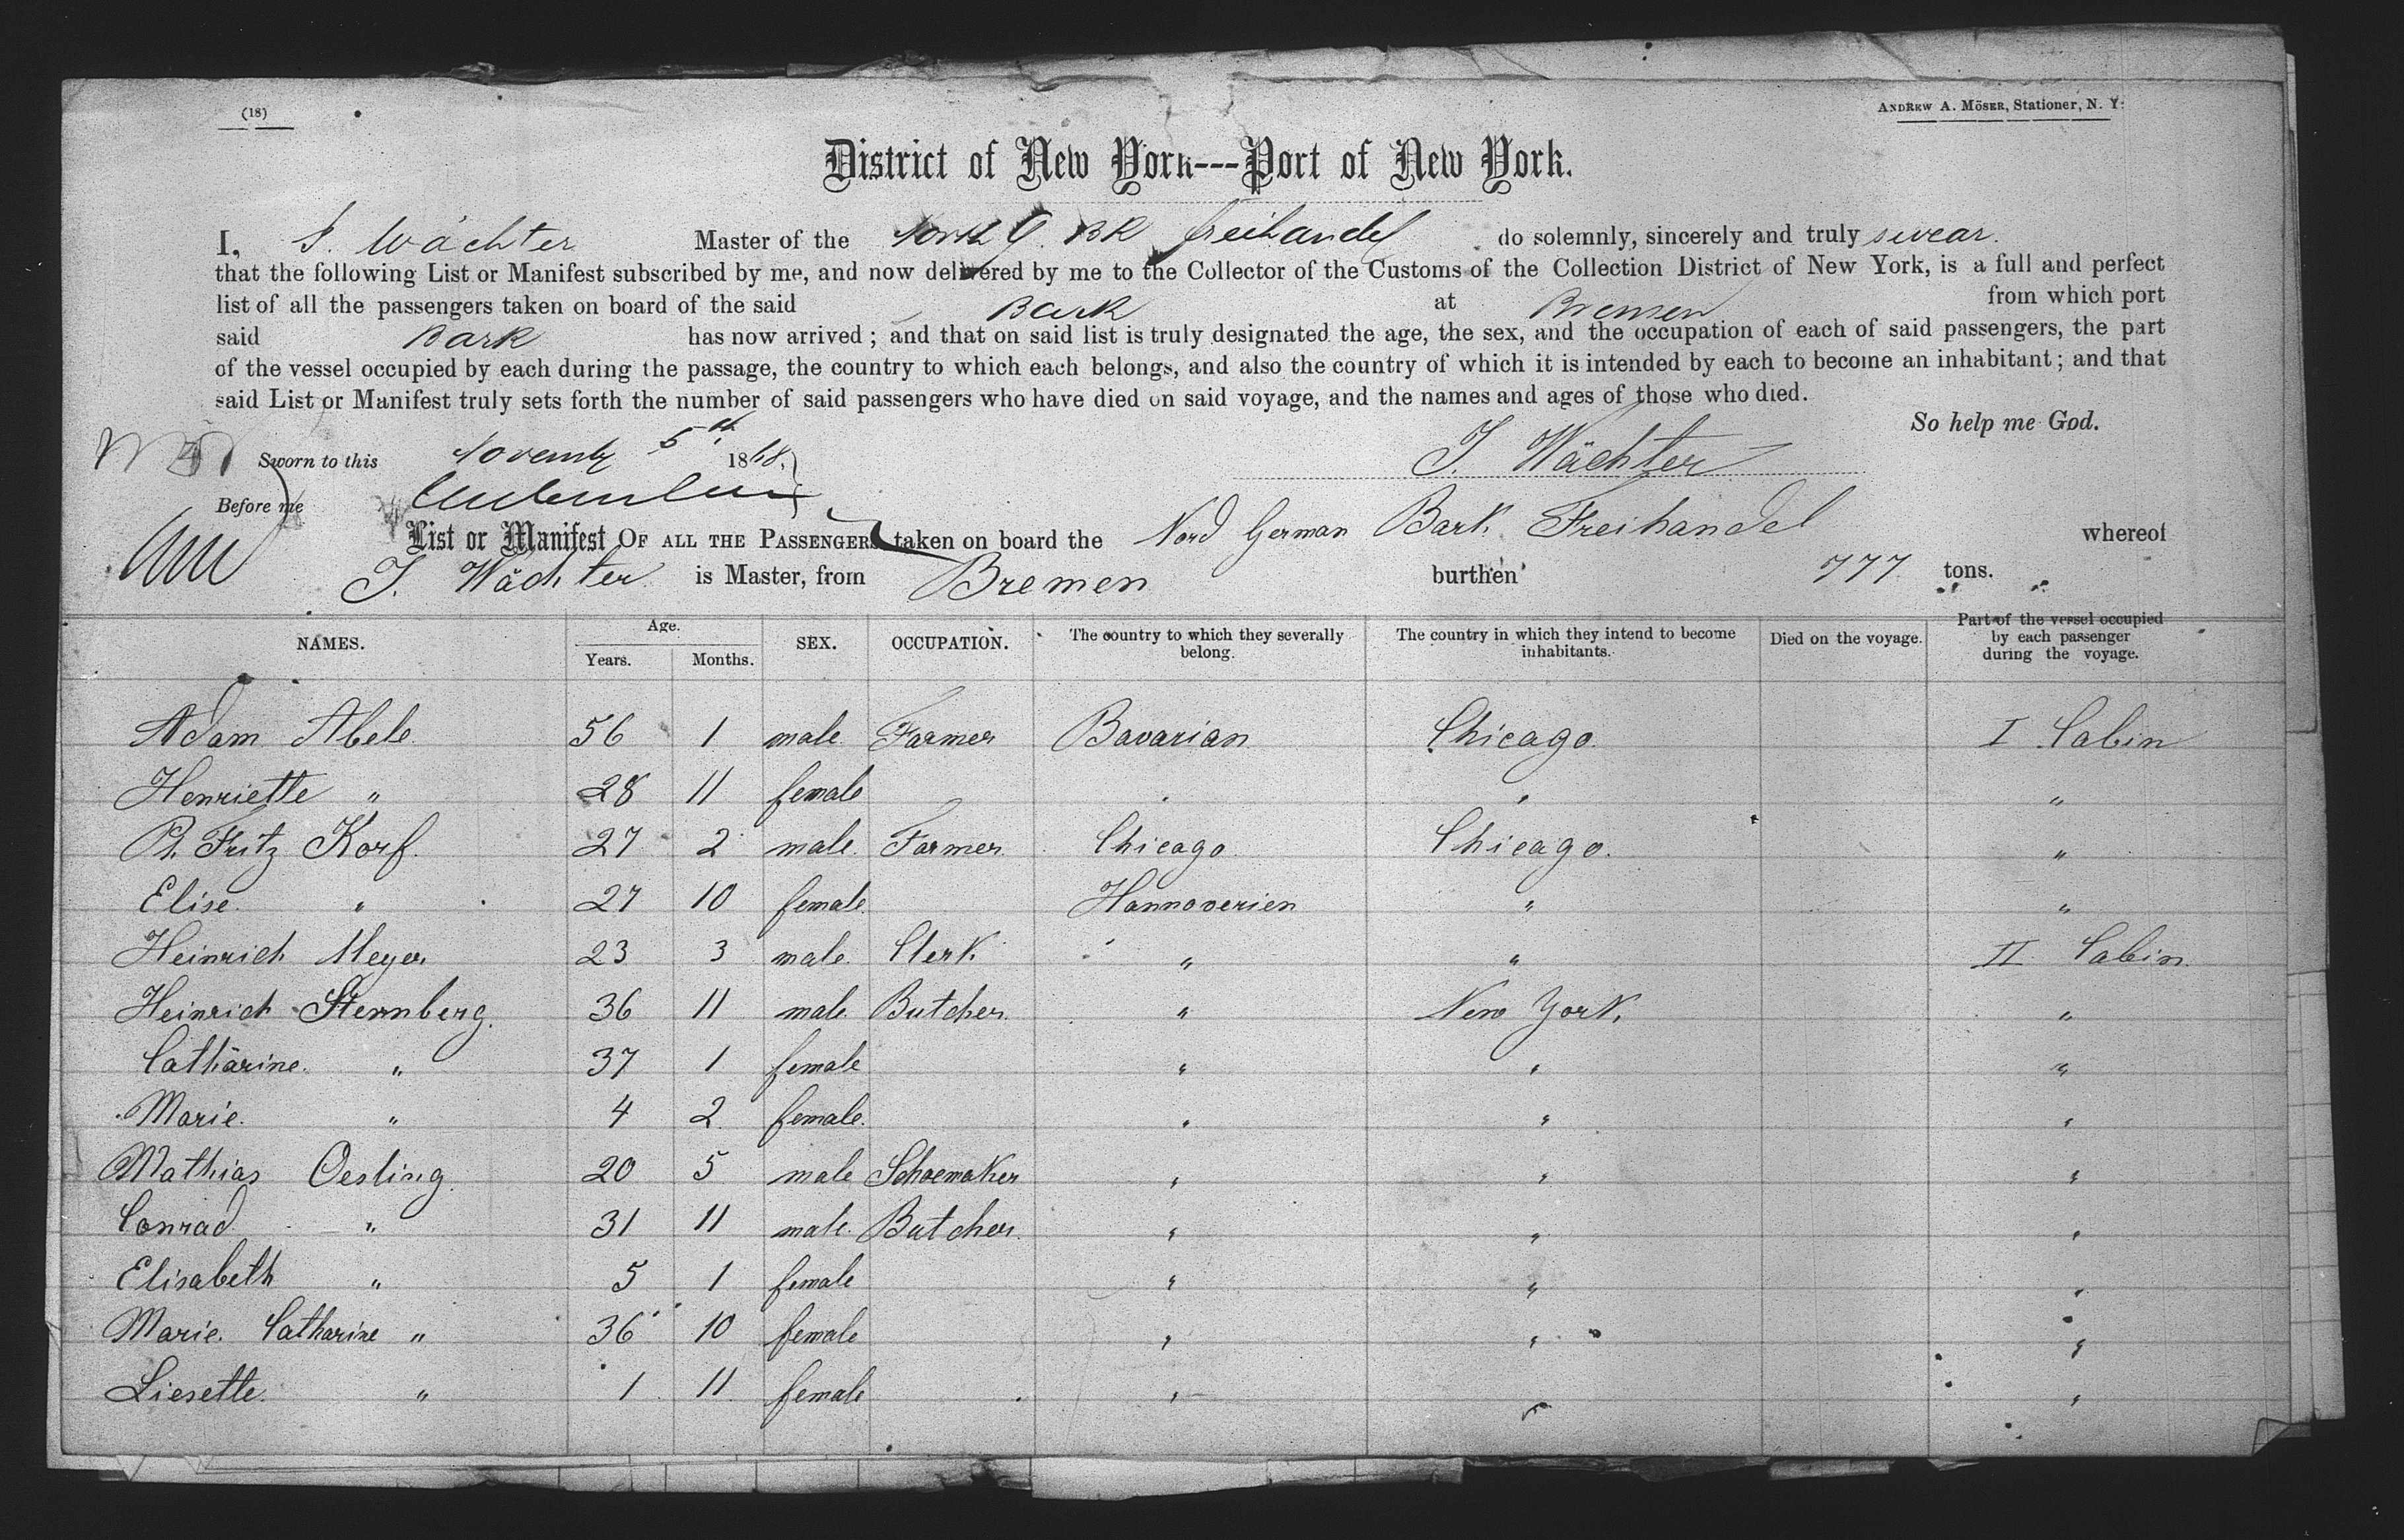 (18)
ANDREW A. MÖSER, Stationer, N. Y.
District of New York---Port of New York.
I, J. Wächter Master of the North G. BK Freihandel do solemnly, sincerely and truly swear.
that the following List or Manifest subscribed by me, and now delivered by me to the Collector of the Customs of the Collection District of New York, is a full and perfect
list of all the passengers taken on board of the said Bark at Bremen from which port
said Bark has now arrived; and that on said list is truly designated the age, the sex, and the occupation of each of said passengers, the part
of the vessel occupied by each during the passage, the country to which each belongs, and also the country of which it is intended by each to become an inhabitant; and that
said List or Manifest truly sets forth the number of said passengers who have died on said voyage, and the names and ages of those who died.
So help me God.
Sworn to this November 5th 1868. J. Wächter
Before me
List or Manifest OF ALL THE PASSENGERS taken on board the Nord German Bark Freihandel whereof
J. Wächter is Master, from Bremen burthen 777 tons.
NAMES. Age. Years. Months. SEX. OCCUPATION. The country to which they severally belong. The country in which they intend to become inhabitants. Died on the voyage. Part of the vessel occupied by each passenger during the voyage.
Adam Abele 56 1 male Farmer Bavarian Chicago I Cabin
Henriette " 28 11 female " " "
Ph. Fritz Korf. 27 2 male Farmer Chicago Chicago. "
Elise " 27 10 female Hannoverien " "
Heinrich Meyer 23 3 male Clerk " " II Cabin
Heinrich Sternberg. 36 11 male Butcher " New York, "
Cathärine. " 37 1 female " " "
Marie. " 4 2 female. " " "
Mathias Oesling. 20 5 male Schoemaker " " "
Conrad " 31 11 male Butcher. " " "
Elisabeth " 5 1 female " " "
Marie. Catharine " 36 10 female " " "
Liesette. " 1 11 female " " "